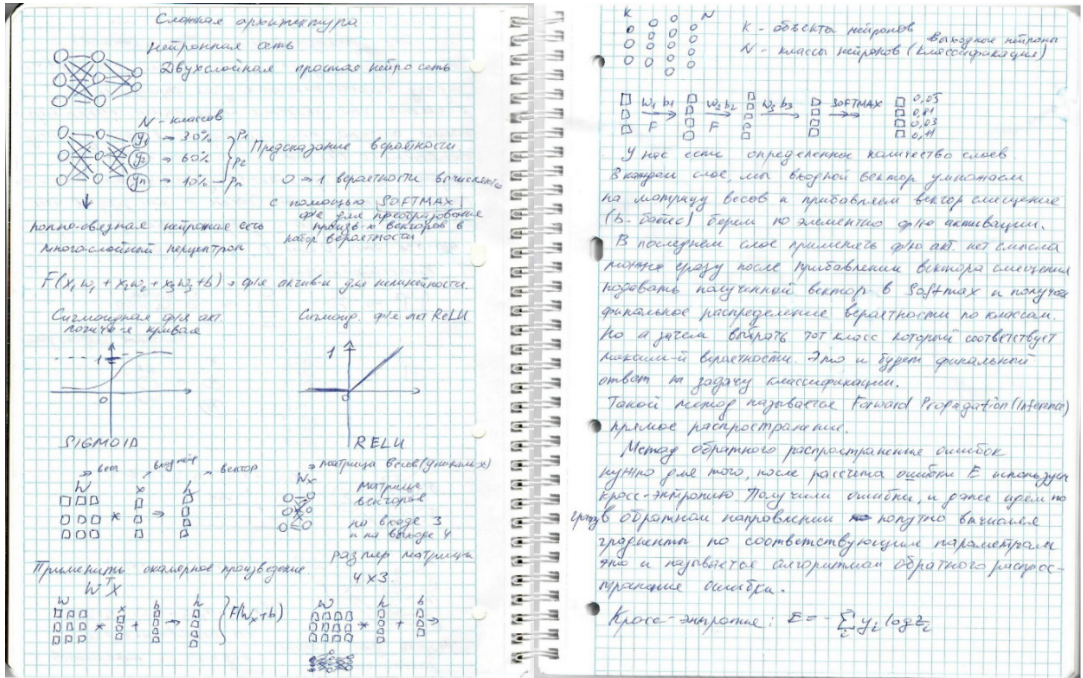 Сложная архитектура
Нейронная сеть
Двухслойная простая нейро сеть
N - классов
y1 → 30% p1
y2 → 60% p2
yn → 10% pn
Предсказание вероятности
0 → 1 вероятности вычислять
с помощью SOFTMAX
ф/е для преобразование
произв-х векторов в
набор вероятности
полно-связная нейроная сеть
много-слойный перцептрон
F(x1w1 + x2w2 + x3w3 + b) → ф/е актив-и для нелинейности.
Сигмоидная ф/е акт.
логиче-я кривая
1
0
SIGMOID
Сигмоид. ф/е акт ReLU
1
0
RELU
→ веса входные → вектор
W x h
* →
→ матрица весов (умножить)
Wx
матрица
векторов
на входе 3
и на выходе 4
размер матрицы
4 x 3.
Применить скалярное произведение
W^T X
W x b h
* + → F(Wx+b)
W h b
* + →
K N
K - объекты нейронов
выходные нейроны
N - классы нейронов (классификация)
W1 b1 W2 b2 W3 b3 SOFTMAX
F F
0,05
0,81
0,03
0,11
У нас есть определенное количество слоев.
В каждом слое, мы входной вектор умножаем
на матрицу весов и прибавляем вектор смещение
(b-байес) берем по элементно ф/ю активации.
В последнем слое применять ф/ю акт. нет смысла
можно сразу после прибавлении вектора смещения
подавать полученной вектор в Softmax и получая
финальное распределение вероятности по классам.
Но а зачем выбрать тот класс который соответствует
максим-й вероятности. Это и будет финальной
ответ на задачу классификации.
Такой метод называется Forward Propagation (Inference)
прямое распространение.
Метод обратного распространение ошибок
нужно для того, после рассчета ошибки E используя
кросс-энтропию Получили ошибки, и далее идем по
графу в обратном направлении попутно вычисляя
градиенты по соответствующим параметрам
это и называется алгоритмом обратного распрос-
транение ошибки.
Кросс-энтропие: E = - Σi yi log zi